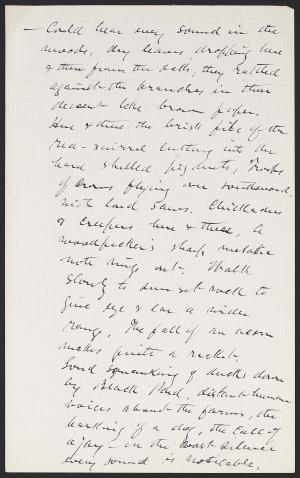 — Could hear every sound in the
woods, dry leaves dropping here
& there from the oaks, they rattled
against the branches in their
descent like brown paper.
Here & there the brisk file of the
red-squirrel cutting into the
hard shelled pignuts, Troops
of Crows flying over southward
with loud Caws. Chickadees
& Creepers here & there, A
woodpecker's sharp metallic
note rings out. Walk
slowly to sunset rock to
give eye & ear a wider
range, The fall of an acorn
makes quite a racket.
Loud squawking of ducks down
by Black Pond, distant human
voices about the farms, the
barking of a dog, the call of
a jay — in the vast silence
every sound is noticeable.